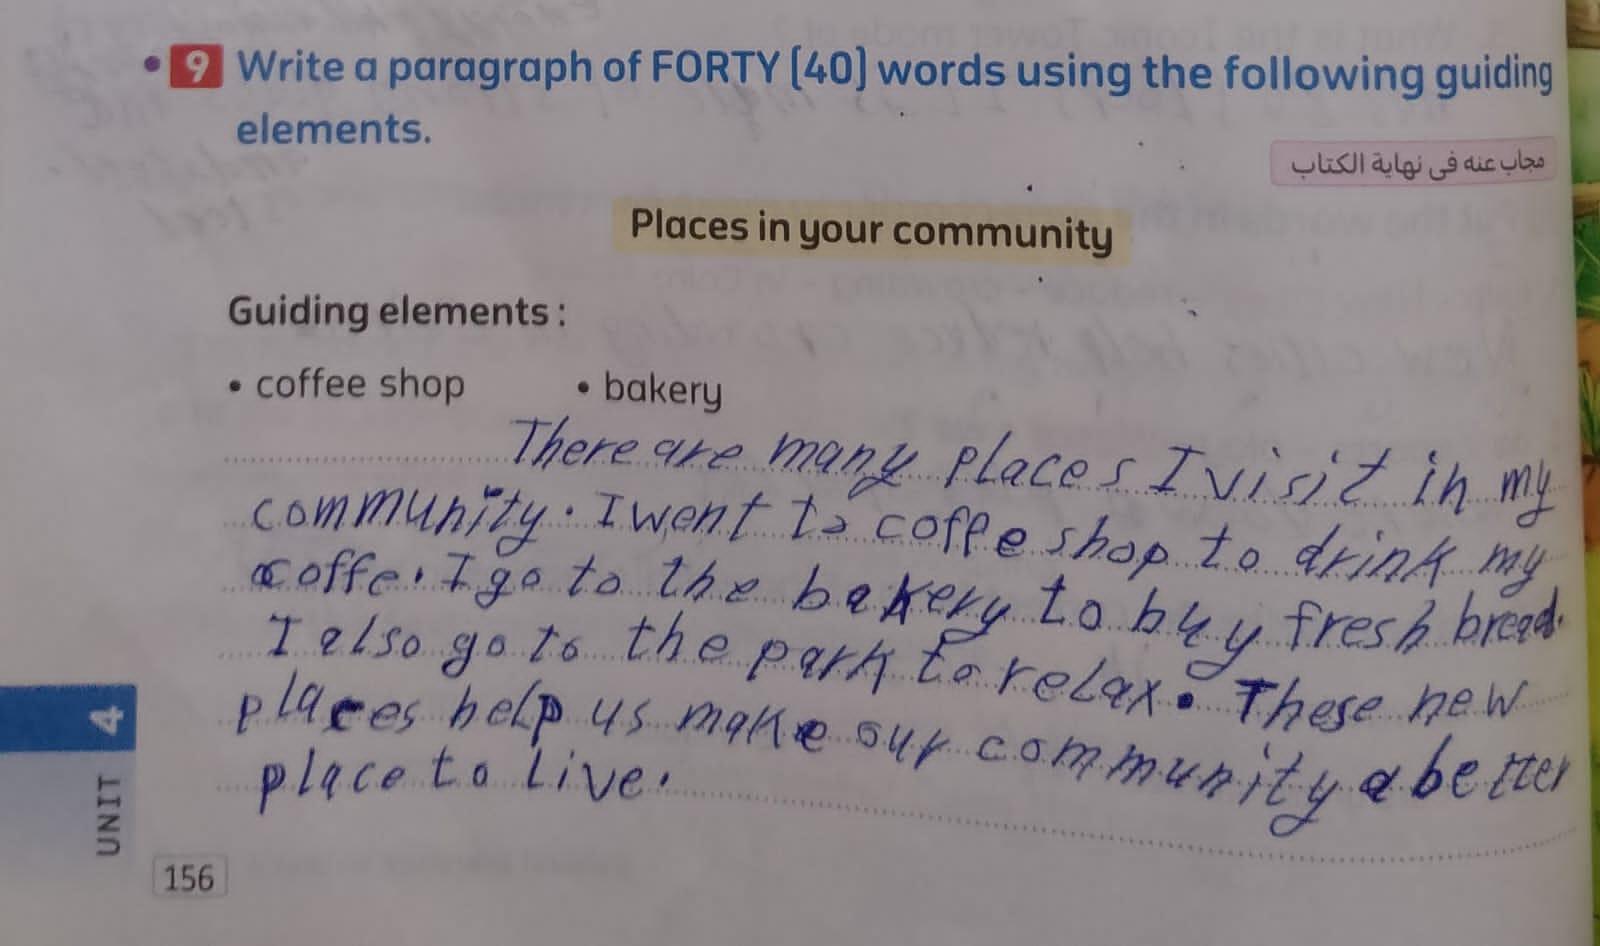 9 Write a paragraph of FORTY (40) words using the following guiding
elements.
مجاب عنه فى نهاية الكتاب
Places in your community
Guiding elements :
• coffee shop • bakery
There are many places I visit in my
community. I went to coffe shop to drink my
coffe. I go to the bakery to buy fresh bread.
I also go to the park to relax. These new
places help us make our community a better
place to live.
UNIT 4
156